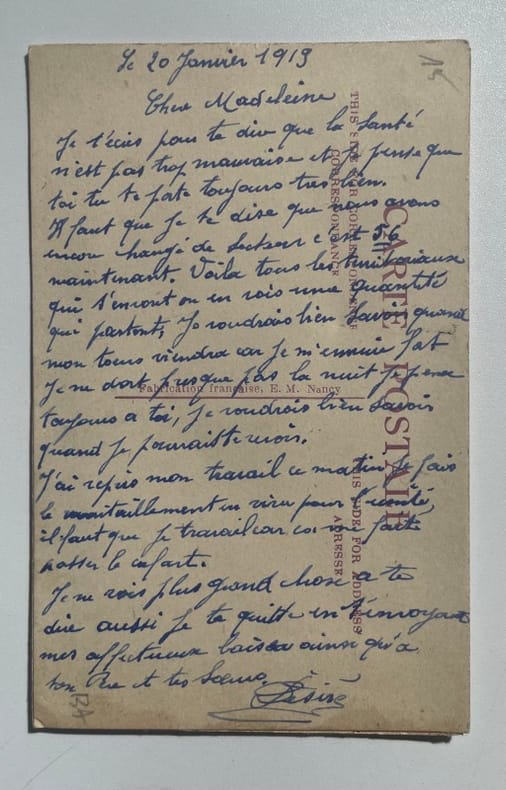 Le 20 Janvier 1919
Chere Madeleine
Je t'écris pour te dire que la Santé
n'est pas trop mauvaise et je pense que
toi tu te porte toujours tres bien.
Il faut que je te dise que nous avons
encore changé de Secteur c'est 56
maintenant. Voila tous les territoriaux
qui s'en vont on en vois une quantité
qui partent, Je voudrais bien Savoir quand
mon tours viendra car Je m'ennuie fort
Je ne dort presque pas la nuit Je pense
toujours a toi, je voudrais bien savoir
quand Je pourrais te revoir.
J'ai repris mon travail ce matin Je fais
le ravitaillement en vivre pour l'unité
il faut que Je travail car ca me fait
passer le cafart.
Je ne vois plus grand chose a te
dire aussi Je te quitte en t'envoyant
mes affectueux baisers ainsi qu'a
ton Pere et tes Sœurs.
Désiré
15
CARTE POSTALE
THIS SIDE FOR CORRESPONDANCE
CORRESPONDANCE
THIS SIDE FOR ADDRESS
ADRESSE
Fabrication française, E. M. Nancy